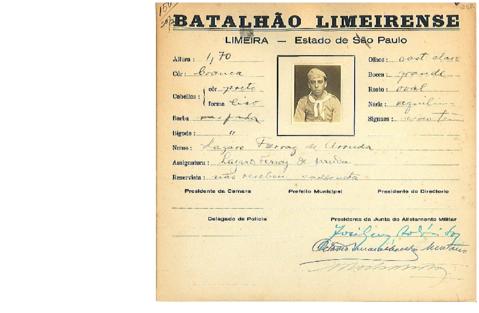 BATALHÃO LIMEIRENSE
LIMEIRA — Estado de São Paulo
Altura: 1,70
Olhos: cast. claro
Côr: branca
Bocca: grande
Cabellos: côr preto
forma liso
Rosto: oval
Nariz:
Barba
Signaes:
Bigode: "
Nome: Lazaro Ferraz de Arruda
Assignatura: Lazaro Ferraz de Arruda
Reservista: não recebeu
Presidente da Camara Prefeito Municipal Presidente do Directorio
Delegado de Policia Presidente da Junta do Alistamento Militar